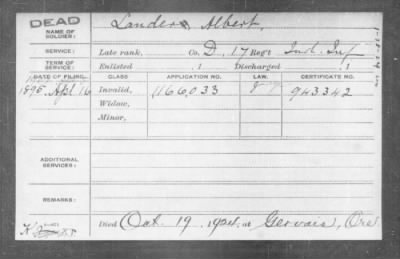 DEAD
NAME OF SOLDIER:
Landers Albert,
SERVICE:
Late rank, Co. D, 17 Reg't Ind. Inf
TERM OF SERVICE:
Enlisted , 1 Discharged , 1
DATE OF FILING. CLASS APPLICATION NO. LAW. CERTIFICATE NO.
1895. Apl 16 Invalid, 1166,033 943342
Widow,
Minor,
ADDITIONAL SERVICES:
REMARKS:
Died Oct. 19, 1924, at Gervais, Ore